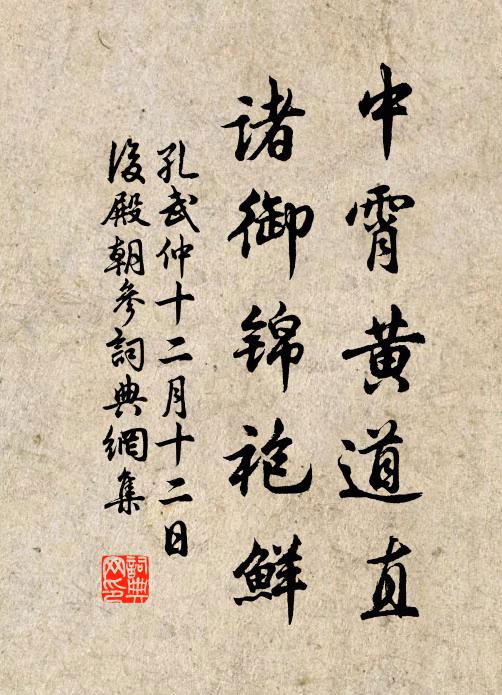 中霄黄道直
諸御錦袍鮮
孔武仲十二月十二日
後殿朝參詞典網集
詞典网印